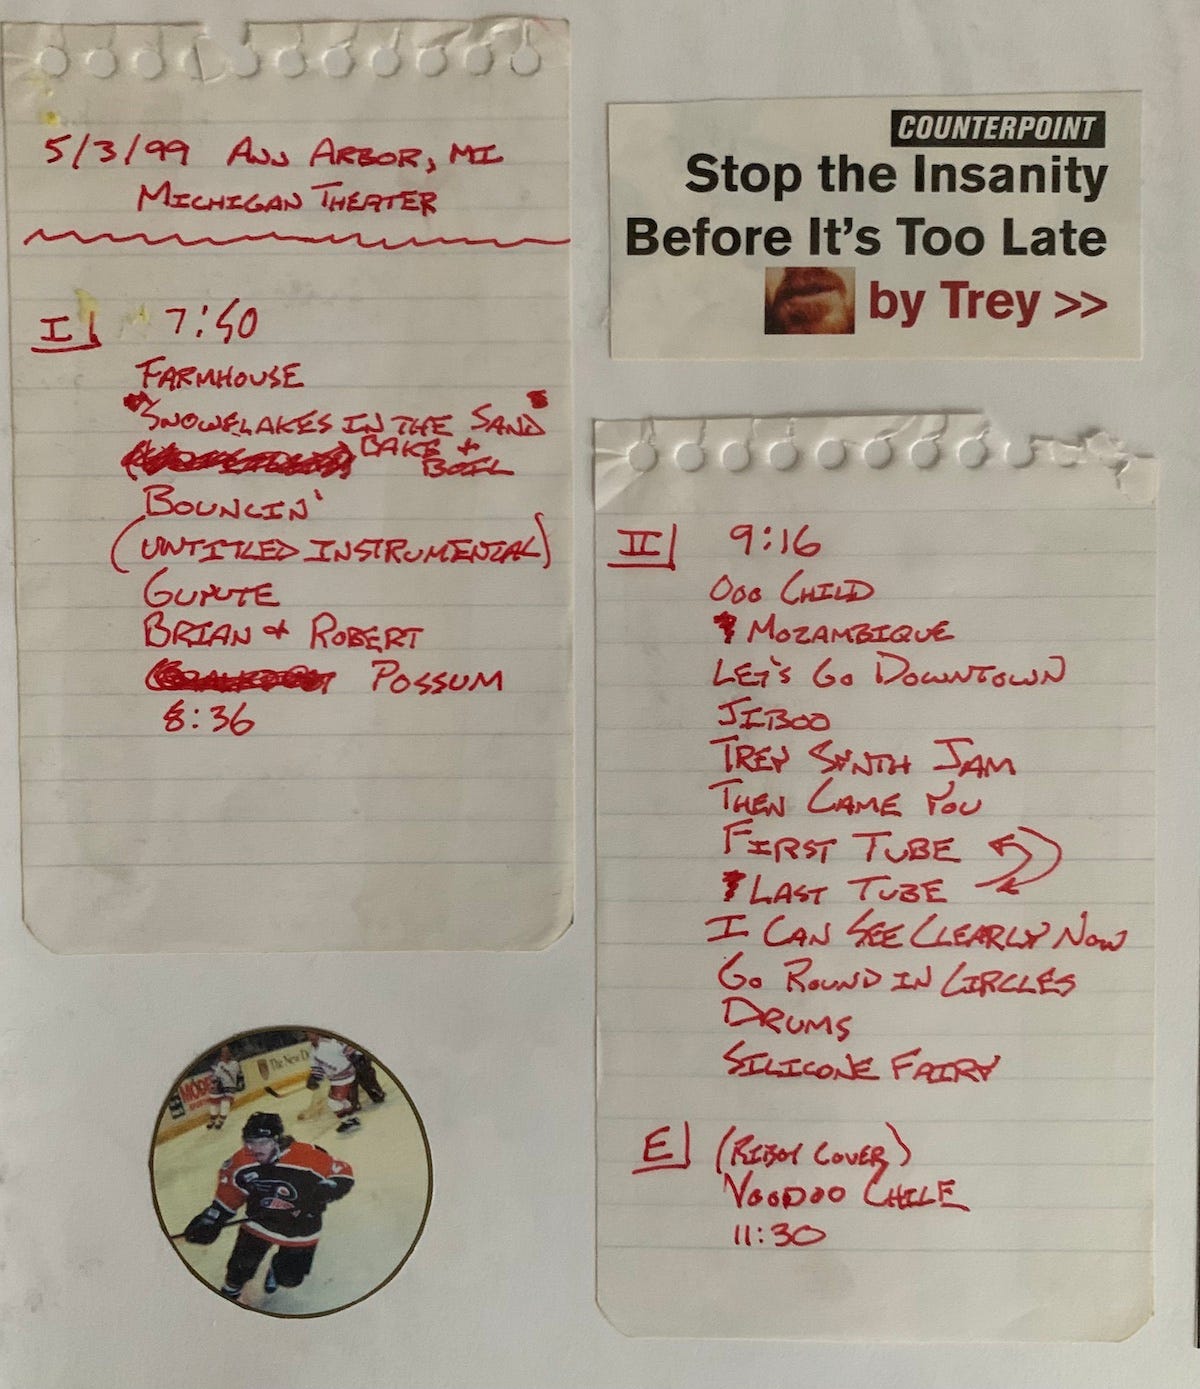 5/3/99 ANN ARBOR, MI
MICHIGAN THEATER
I 7:50
FARMHOUSE
"SNOWFLAKES IN THE SAND"
BAKE +
BOIL
BOUNCIN'
(UNTITLED INSTRUMENTAL)
GUYUTE
BRIAN + ROBERT
POSSUM
8:36
COUNTERPOINT
Stop the Insanity
Before It's Too Late
by Trey >>
II 9:16
OOO CHILD
MOZAMBIQUE
LET'S GO DOWNTOWN
JIBOO
TREY SYNTH JAM
THEN CAME YOU
FIRST TUBE
LAST TUBE
I CAN SEE CLEARLY NOW
GO ROUND IN CIRCLES
DRUMS
SILICONE FAIRY
E (RIBOT COVER)
VOODOO CHILE
11:30
The New D
MODE